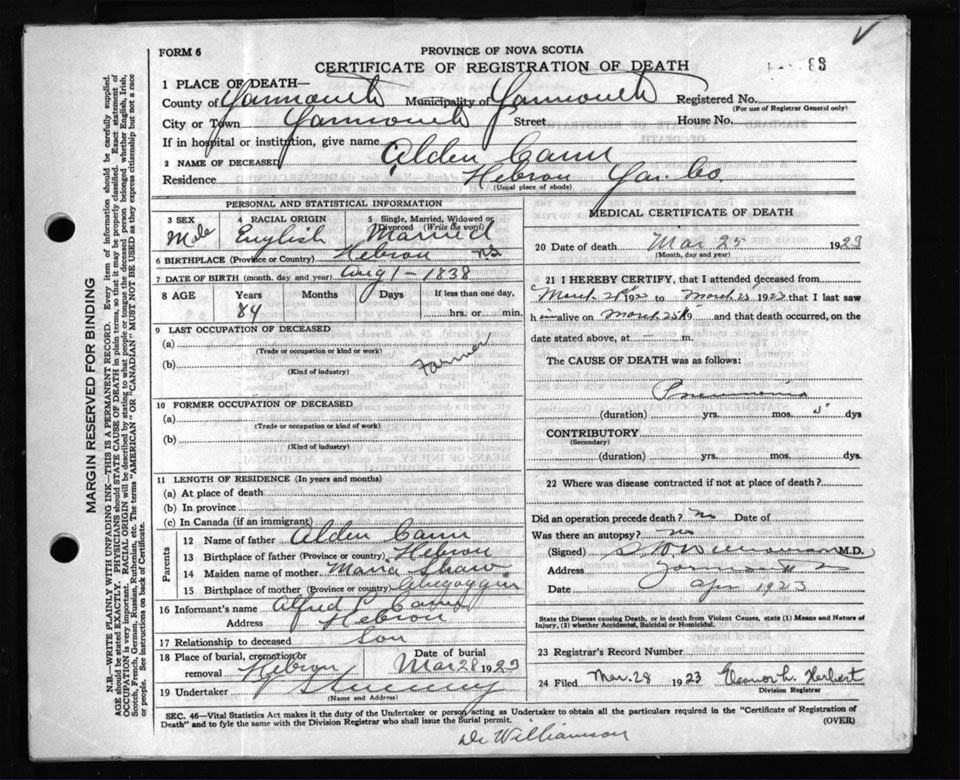 FORM 6
PROVINCE OF NOVA SCOTIA
CERTIFICATE OF REGISTRATION OF DEATH
83
1 PLACE OF DEATH—
County of Yarmouth Municipality of Yarmouth Registered No.
(For use of Registrar General only)
City or Town Yarmouth Street House No.
If in hospital or institution, give name
2 NAME OF DECEASED Alden Cann
Residence Hebron Yar. Co.
(Usual place of abode)
PERSONAL AND STATISTICAL INFORMATION
3 SEX Male
4 RACIAL ORIGIN English
5 Single, Married, Widowed or Divorced (Write the word) Married
6 BIRTHPLACE (Province or Country) Hebron N.S.
7 DATE OF BIRTH (month, day and year) Aug 1 - 1838
8 AGE Years Months Days If less than one day,
84 hrs. or min.
9 LAST OCCUPATION OF DECEASED
(a)
(Trade or occupation or kind or work)
(b) Farmer
(Kind of industry)
10 FORMER OCCUPATION OF DECEASED
(a)
(Trade or occupation or kind of work)
(b)
(Kind of industry)
11 LENGTH OF RESIDENCE (In years and months)
(a) At place of death
(b) In province
(c) In Canada (if an immigrant)
Parents
12 Name of father Alden Cann
13 Birthplace of father (Province or country) Hebron
14 Maiden name of mother Maria Shaw
15 Birthplace of mother (Province or country)
16 Informant's name Alfred Cann
Address Hebron
17 Relationship to deceased Son
18 Place of burial, cremation or removal Hebron
Date of burial Mar 28 1923
19 Undertaker
(Name and Address)
MEDICAL CERTIFICATE OF DEATH
20 Date of death Mar 25 1923
(Month, day and year)
21 I HEREBY CERTIFY, that I attended deceased from
March 1923 to March 1923 that I last saw
him alive on March 25th 19 and that death occurred, on the
date stated above, at m.
The CAUSE OF DEATH was as follows:
Pneumonia
(duration) yrs. mos. dys
CONTRIBUTORY
(Secondary)
(duration) yrs. mos. dys.
22 Where was disease contracted if not at place of death?
Did an operation precede death? No Date of
Was there an autopsy? no
(Signed) M.D.
Address Yarmouth N S
Date Apr 1923
State the Disease causing Death, or in death from Violent Causes, state (1) Means and Nature of
Injury, (2) whether Accidental, Suicidal or Homicidal.
23 Registrar's Record Number
24 Filed Mar. 28 1923 Eleanor L. Herbert
Division Registrar
SEC. 46—Vital Statistics Act makes it the duty of the Undertaker or person acting as Undertaker to obtain all the particulars required in the "Certificate of Registration of
Death" and to fyle the same with the Division Registrar who shall issue the burial permit.
(OVER)
Dr Williamson
MARGIN RESERVED FOR BINDING
N.B.—WRITE PLAINLY WITH UNFADING INK—THIS IS A PERMANENT RECORD. Every item of information should be carefully supplied.
AGE should be stated EXACTLY. PHYSICIANS should STATE CAUSE OF DEATH in plain terms, so that it may be properly classified. Exact statement of
OCCUPATION is very important. RACIAL ORIGIN will be described by stating to what people or tongue the deceased person belonged whether English, Irish,
Scotch, French, German, Russian, Ruthenian, etc. The terms "AMERICAN" OR "CANADIAN" MUST NOT BE USED as they express citizenship but not a race
or people. See instructions on back of Certificate.